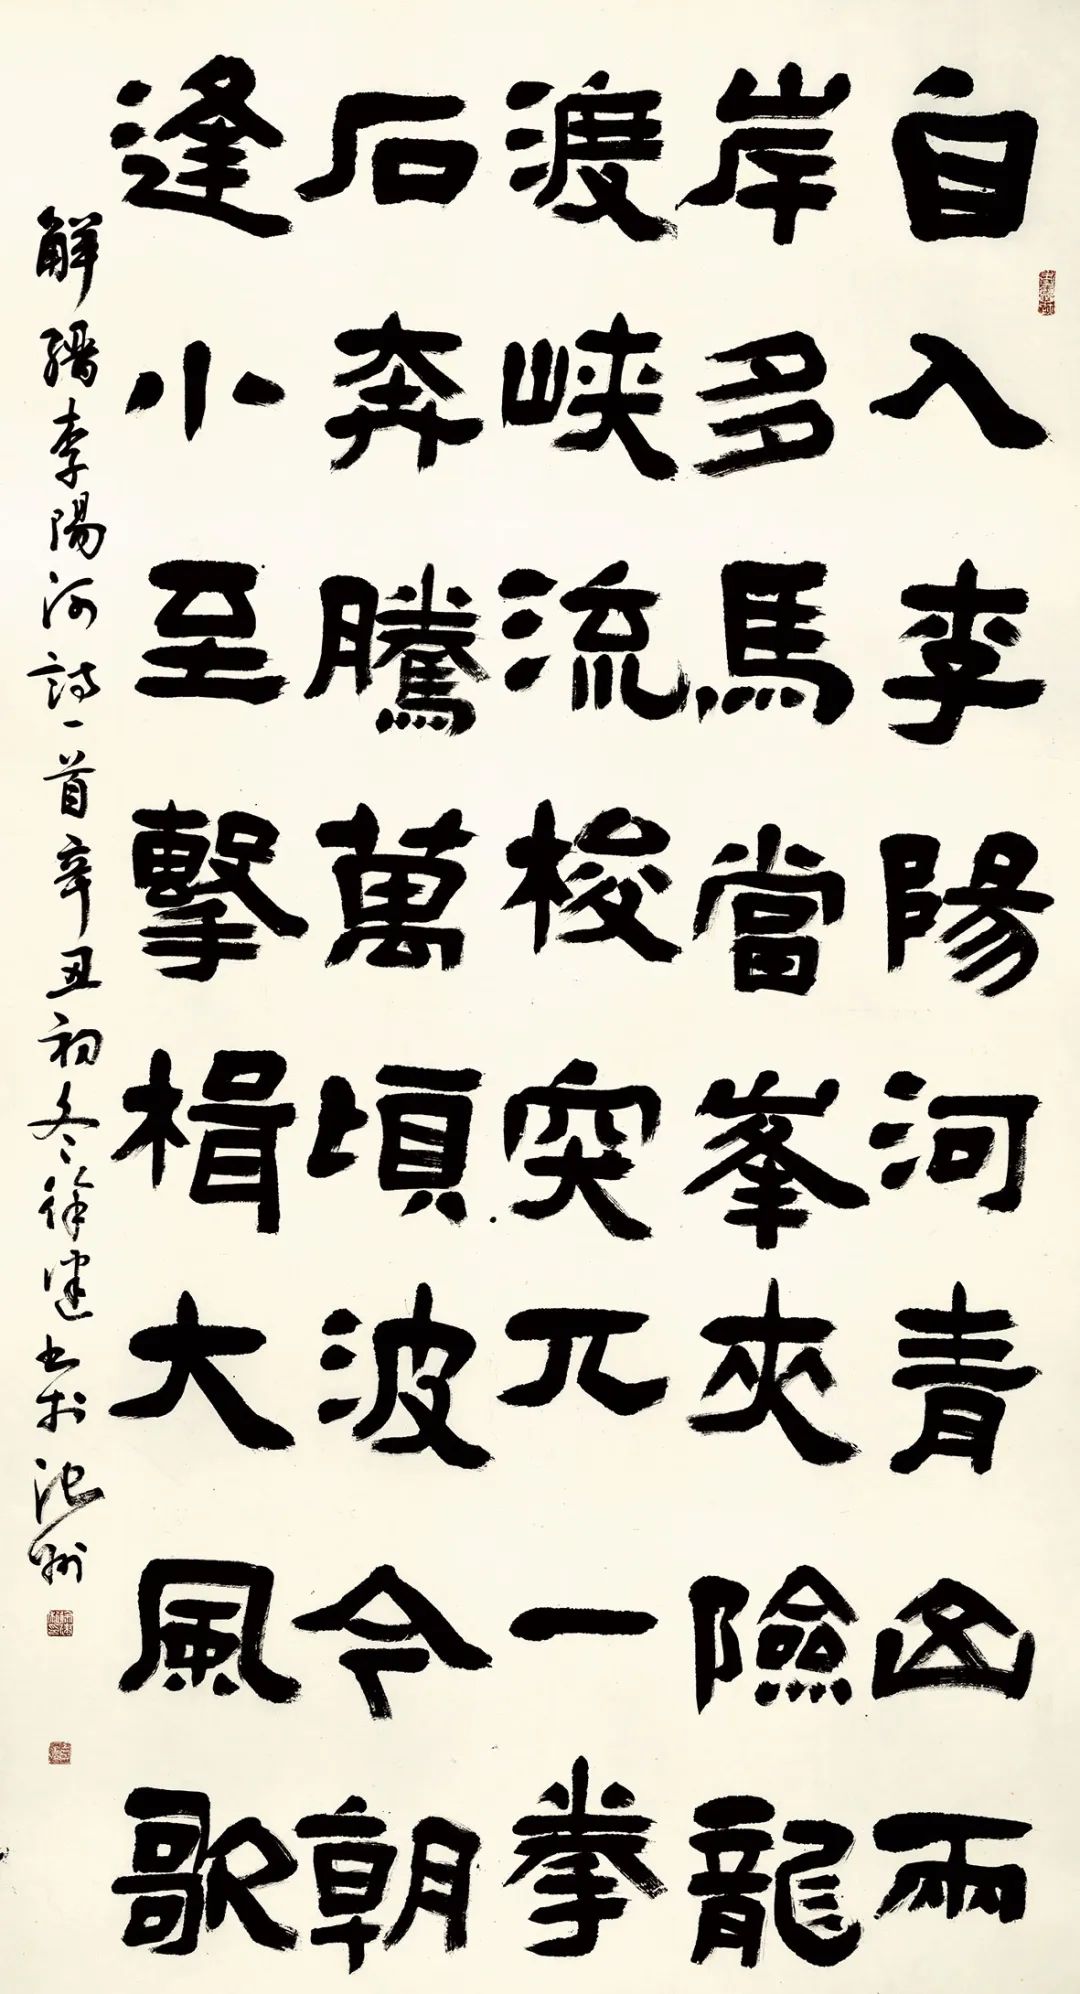 自入李陽河青山兩
岸多馬當峯夾險龍
渡峽流梭突兀一拳
石奔騰萬頃波今朝
逢小至擊楫大風歌
解縉李陽河詩一首辛丑初冬徐建書於池州